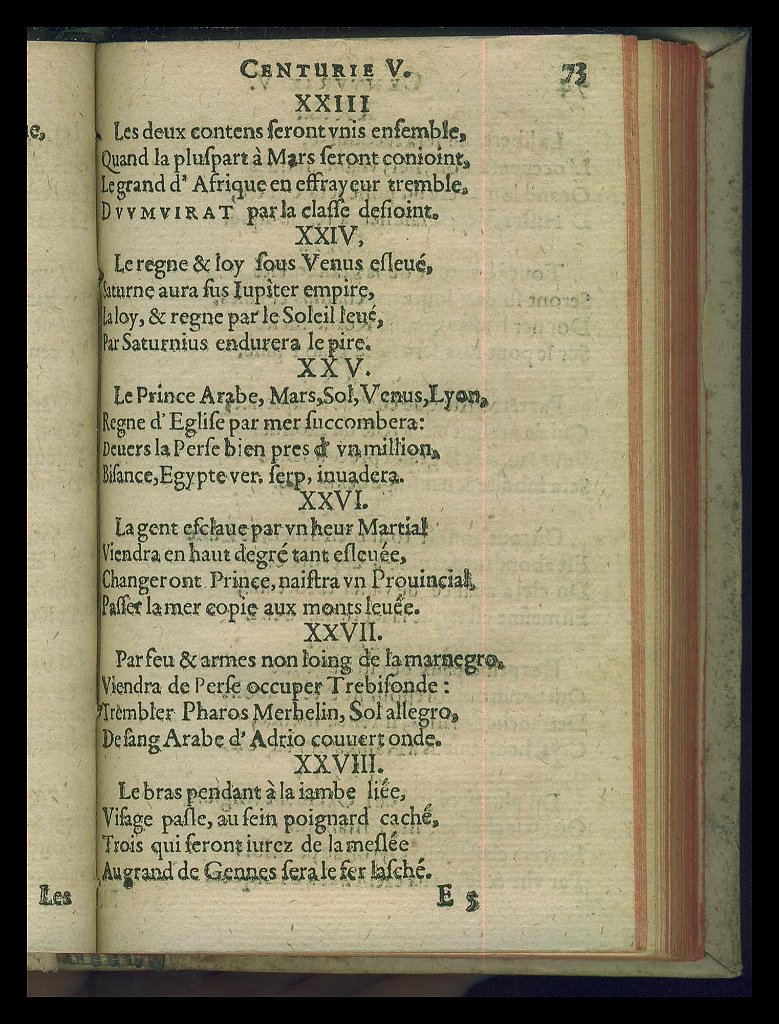 e,
Les
CENTURIE V. 73
XXIII
Les deux contens ſeront vnis enſemble,
Quand la pluſpart à Mars ſeront conioint,
Le grand d' Afrique en effrayeur tremble,
DVVMVIRAT par la claſſe deſioint.
XXIV,
Le regne & loy ſous Venus eſleué,
Saturne aura ſus Iupiter empire,
La loy, & regne par le Soleil leué,
Par Saturnius endurera le pire.
XXV.
Le Prince Arabe, Mars, Sol, Venus, Lyon,
Regne d' Egliſe par mer ſuccombera:
Deuers la Perſe bien pres d' vn million,
Biſance, Egypte ver. ſerp, inuadera.
XXVI.
La gent eſclaue par vn heur Martial
Viendra en haut degré tant eſleuée,
Changeront Prince, naiſtra vn Prouincial,
Paſſer la mer copie aux monts leuée.
XXVII.
Par feu & armes non loing de la marnegro,
Viendra de Perſe occuper Trebiſonde :
Trembler Pharos Merhelin, Sol allegro,
De ſang Arabe d' Adrio couuert onde.
XXVIII.
Le bras pendant à la iambe liée,
Viſage paſle, au ſein poignard caché,
Trois qui ſeront iurez de la meſlée
Au grand de Gennes ſera le fer laſché.
E 5